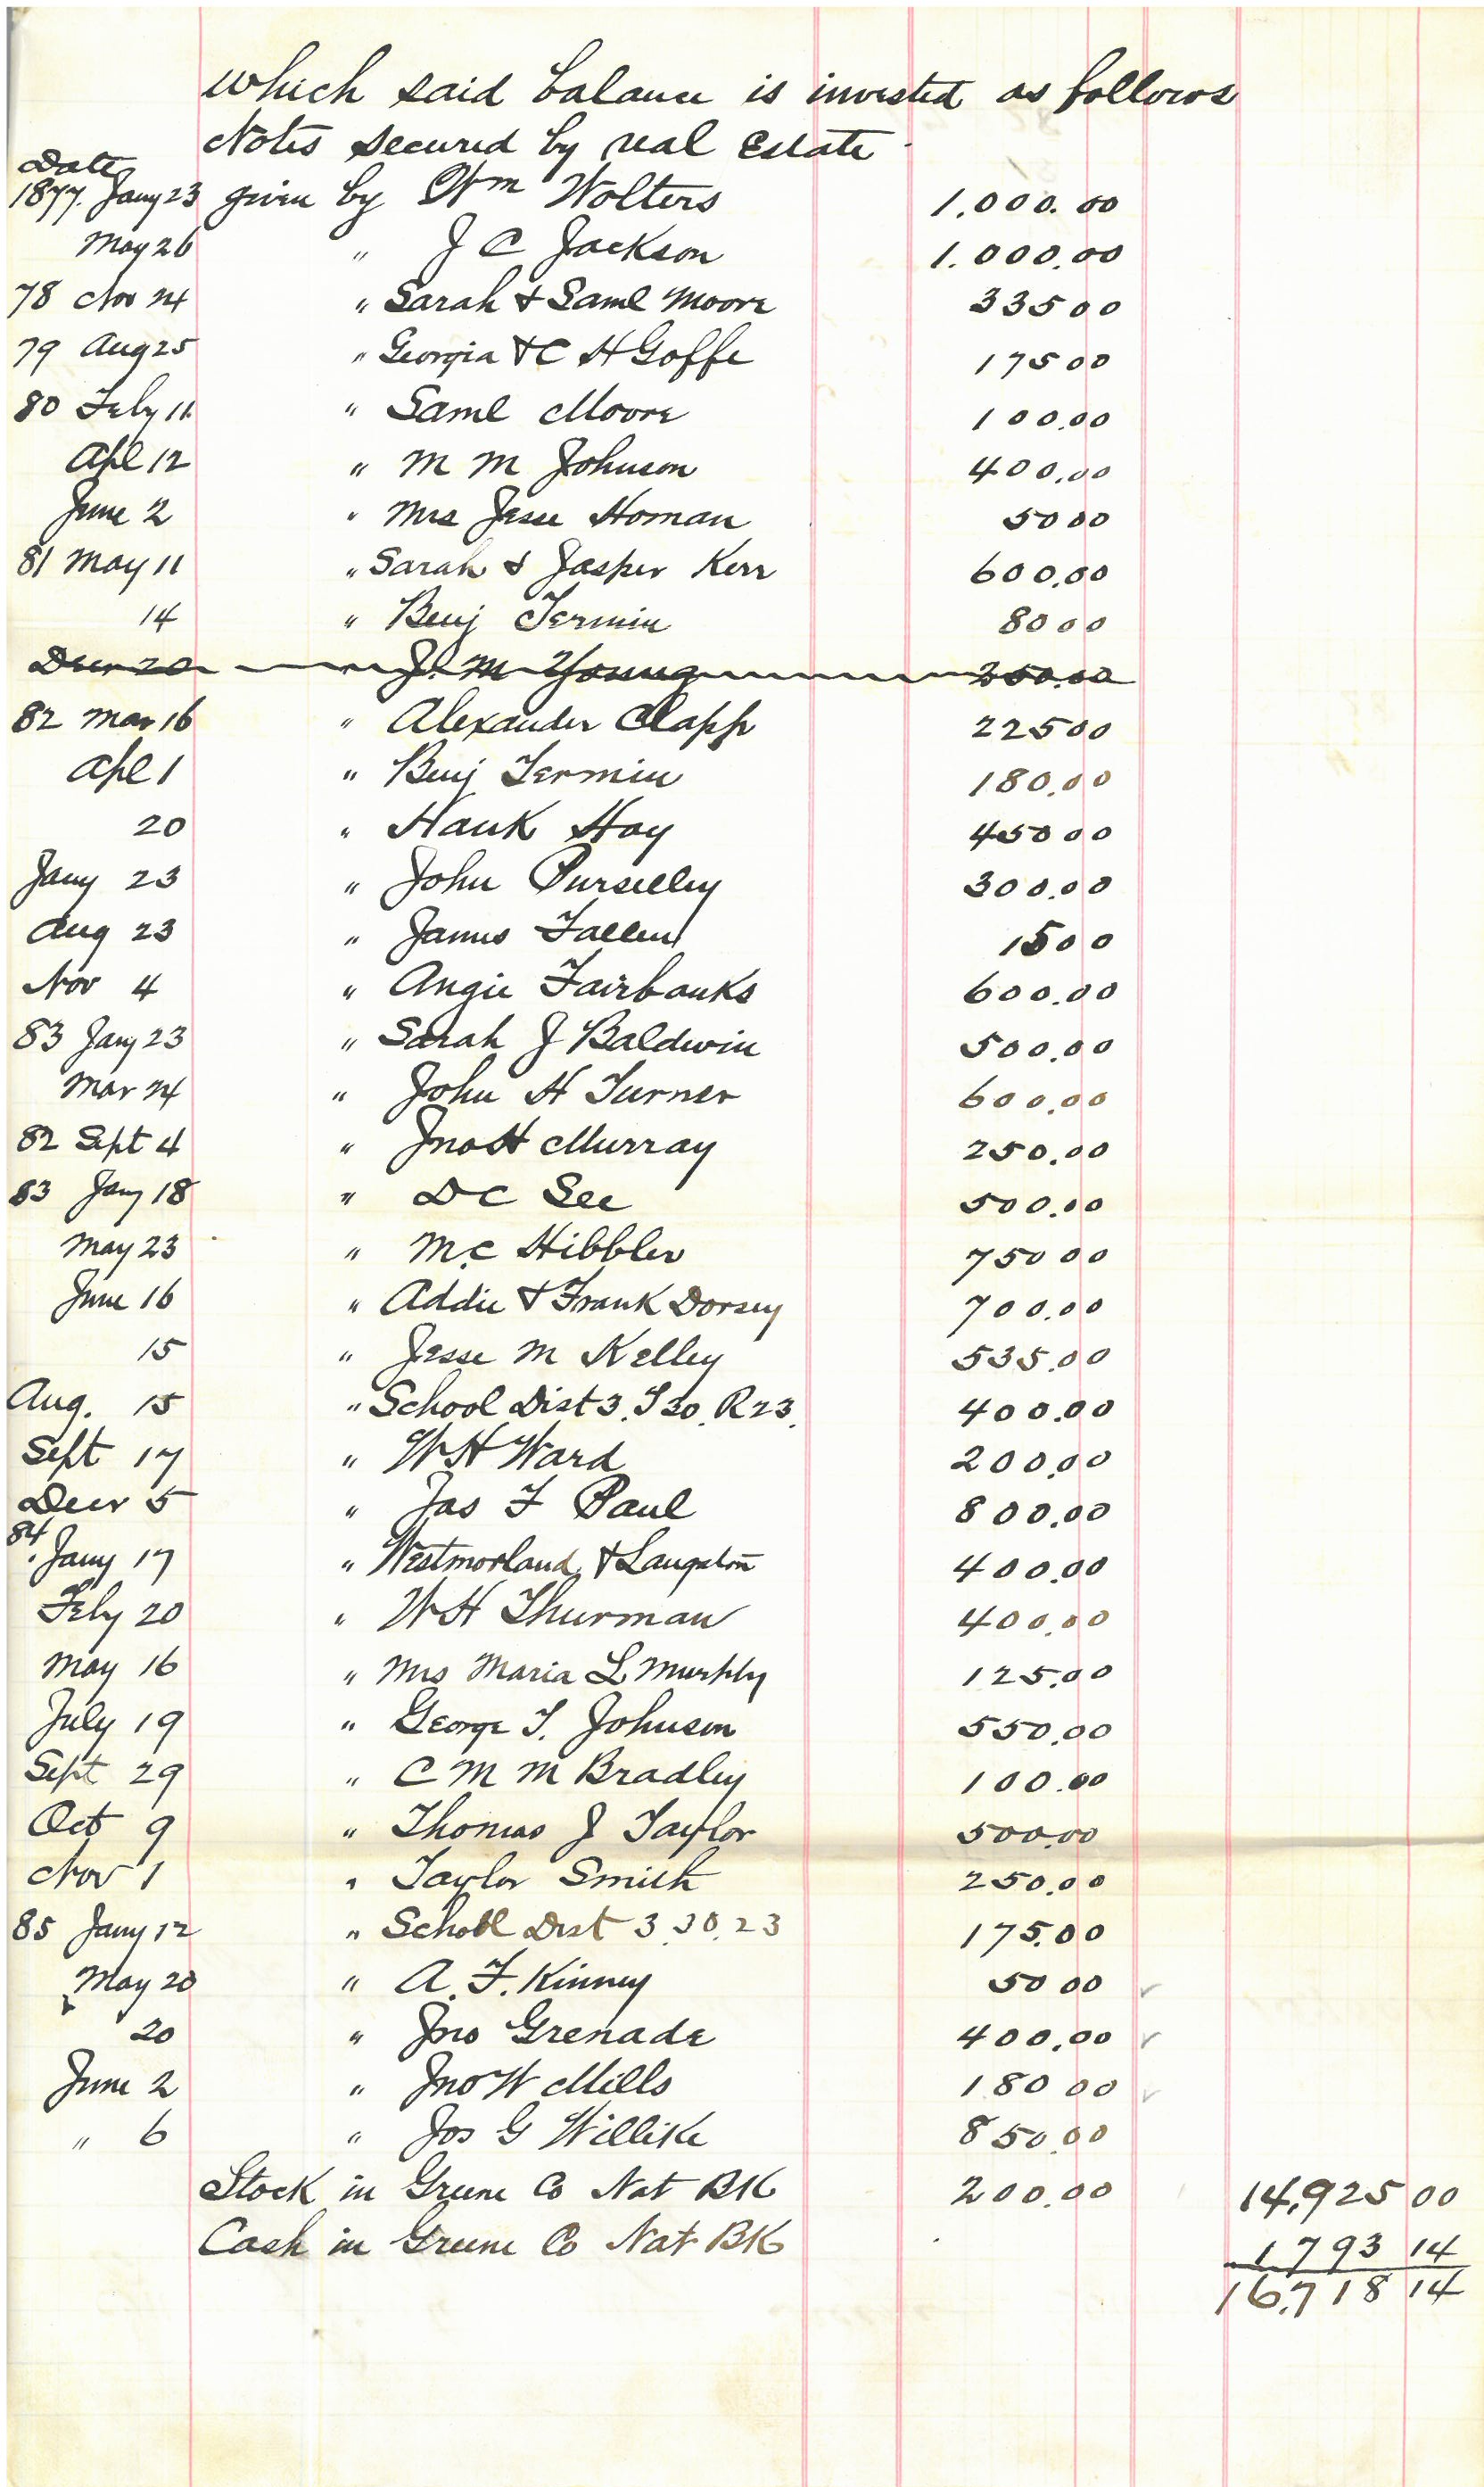 which said balance is invested as follows
Notes secured by real Estate
Date
1877. Jany 23 given by Wm Wolters 1,000.00
May 26 " J C Jackson 1.000.00
78 Nov 24 " Sarah & Saml Moore 335 00
79 Aug 25 " Georgia & C H Goffe 175 00
80 Feby 11 " Saml Moore 100.00
Apl 12 " M M Johnson 400.00
June 2 " Mrs Jesse Homan 50 00
81 May 11 " Sarah & Jasper Kerr 600.00
14 " Benj Fermin 80 00
Decr 20 " J. M Young 250.00
82 Mar 16 " Alexander Clapp 225 00
Apl 1 " Benj Fermin 180.00
20 " Hank Hay 450 00
Jany 23 " John Purselley 300.00
Aug 23 " James Fallen 15 00
Nov 4 " Angie Fairbanks 600.00
83 Jany 23 " Sarah J Baldwin 500.00
Mar 24 " John H Turner 600.00
82 Sept 4 " Jno H Murray 250.00
83 Jany 18 " D C See 500.00
May 23 " M.C Hibbler 750 00
June 16 " Addie & Frank Dorsey 700.00
15 " Jesse M Kelley 535.00
Aug. 15 " School Dist 3. T 30. R 23. 400.00
Sept 17 " W H Ward 200.00
Decr 5 " Jas F Paul 800.00
84
Jany 17 " Westmorland & Langston 400.00
Feby 20 " W H Thurman 400.00
May 16 " Mrs Maria L Murphy 125.00
July 19 " George T. Johnson 550.00
Sept 29 " C M M Bradley 100.00
Oct 9 " Thomas J Taylor 500.00
Nov 1 " Taylor Smith 250.00
85 Jany 12 " School Dist 3.30.23 175.00
May 20 " A. F. Kinney 50 00 ✓
20 " Jno Grenade 400.00 ✓
June 2 " Jno W Mills 180 00 ✓
" 6 " Jos G Willike 850.00
Stock in Greene Co Nat BK 200.00 14,925 00
Cash in Greene Co Nat BK 1793 14
16,718 14